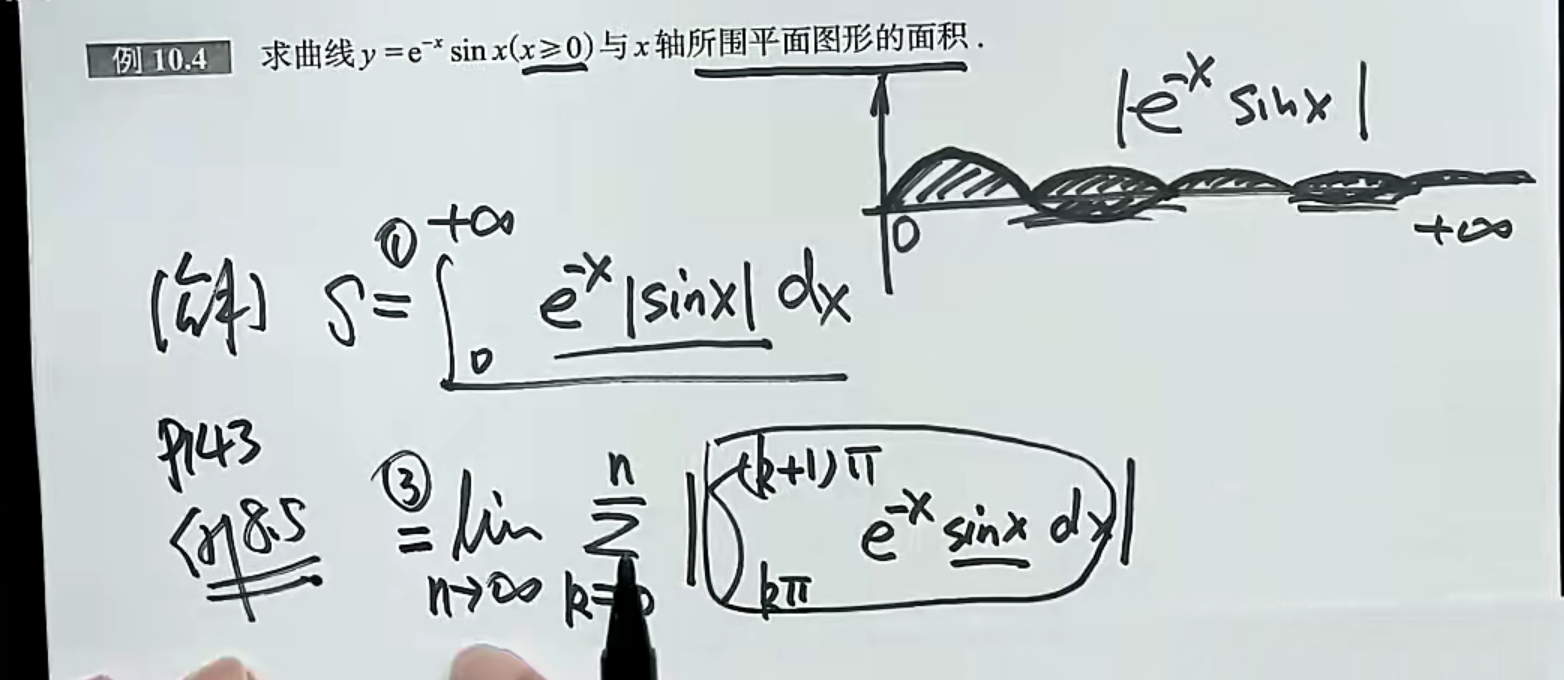 例 10.4 求曲线 y=e⁻ˣ sin x(x≥0)与 x 轴所围平面图形的面积.
|e⁻ˣ sinx|
0 +∞
[解] S ①= ∫₀^{+∞} e⁻ˣ |sinx| dx
P143
例8.5
③= lim_{n→∞} Σ_{k=0}^{n} |∫_{kπ}^{(k+1)π} e⁻ˣ sinx dx|